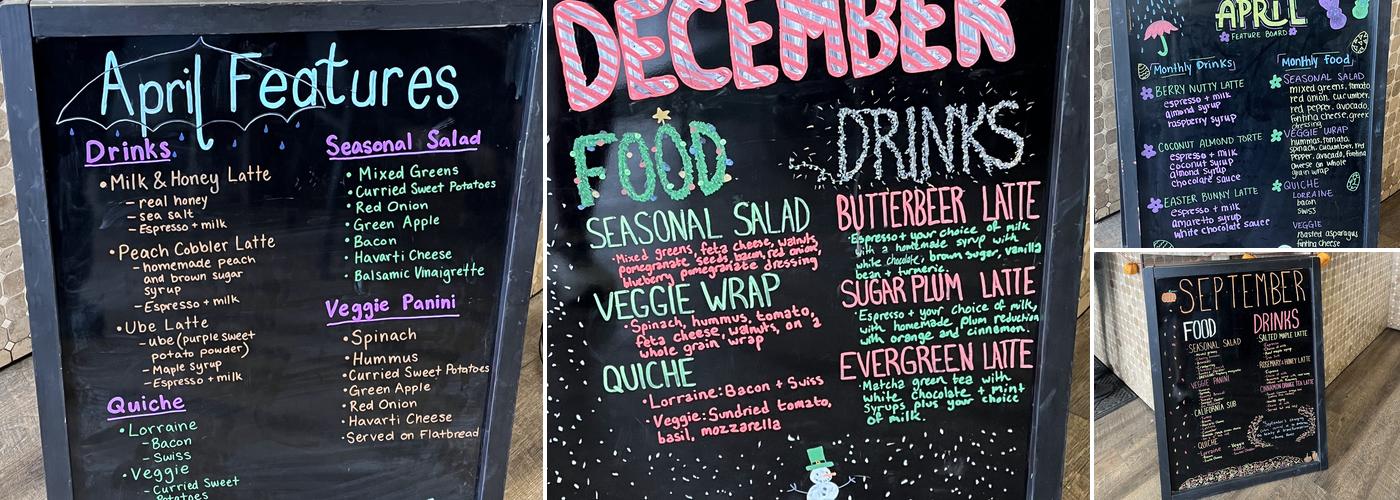 April Features
Drinks
• Milk & Honey Latte
- real honey
- sea salt
- Espresso + milk
• Peach Cobbler Latte
- homemade peach
and brown sugar
syrup
- Espresso + milk
• Ube Latte
- ube (purple sweet
potato powder)
- Maple syrup
- Espresso + milk
Quiche
• Lorraine
- Bacon
- Swiss
• Veggie
- Curried Sweet
Potatoes
Seasonal Salad
• Mixed Greens
• Curried Sweet Potatoes
• Red Onion
• Green Apple
• Bacon
• Havarti Cheese
• Balsamic Vinaigrette
Veggie Panini
• Spinach
• Hummus
• Curried Sweet Potatoes
• Green Apple
• Red Onion
• Havarti Cheese
• Served on Flatbread
DECEMBER
FOOD
SEASONAL SALAD
• Mixed greens, feta cheese, walnuts,
pomegranate, seeds, bacon, red onion
blueberry pomegranate dressing
VEGGIE WRAP
• Spinach, hummus, tomato,
feta cheese, walnuts, on a
whole grain wrap
QUICHE
• Lorraine: Bacon + Swiss
• Veggie: Sundried tomato,
basil, mozzarella
DRINKS
BUTTERBEER LATTE
• Espresso + your choice of milk
with a homemade syrup with
white chocolate, brown sugar, vanilla
bean + turmeric.
SUGAR PLUM LATTE
• Espresso + your choice of milk,
with homemade plum reduction
with orange and cinnamon.
EVERGREEN LATTE
• Matcha green tea with
white chocolate + mint
syrups plus your choice
of milk.
APRIL
FEATURE BOARD
Monthly Drinks
BERRY NUTTY LATTE
espresso + milk
almond syrup
raspberry syrup
COCONUT ALMOND TORTE
espresso + milk
coconut syrup
almond syrup
chocolate sauce
EASTER BUNNY LATTE
espresso + milk
amaretto syrup
white chocolate sauce
Monthly food
SEASONAL SALAD
mixed greens, tomato
red onion, cucumber,
red pepper, avocado,
fontina cheese, greek
dressing
VEGGIE WRAP
hummus, tomato,
spinach, cucumber, red
pepper, avocado, fontina
cheese on whole
grain wrap
QUICHE
LORRAINE
bacon
swiss
VEGGIE
roasted asparagus
fontina cheese
SEPTEMBER
FOOD
SEASONAL SALAD
VEGGIE PANINI
CALIFORNIA SUB
QUICHE
• Lorraine
• Veggie
DRINKS
SALTED MAPLE LATTE
ROSEMARY + HONEY LATTE
CINNAMON ORANGE TEA LATTE